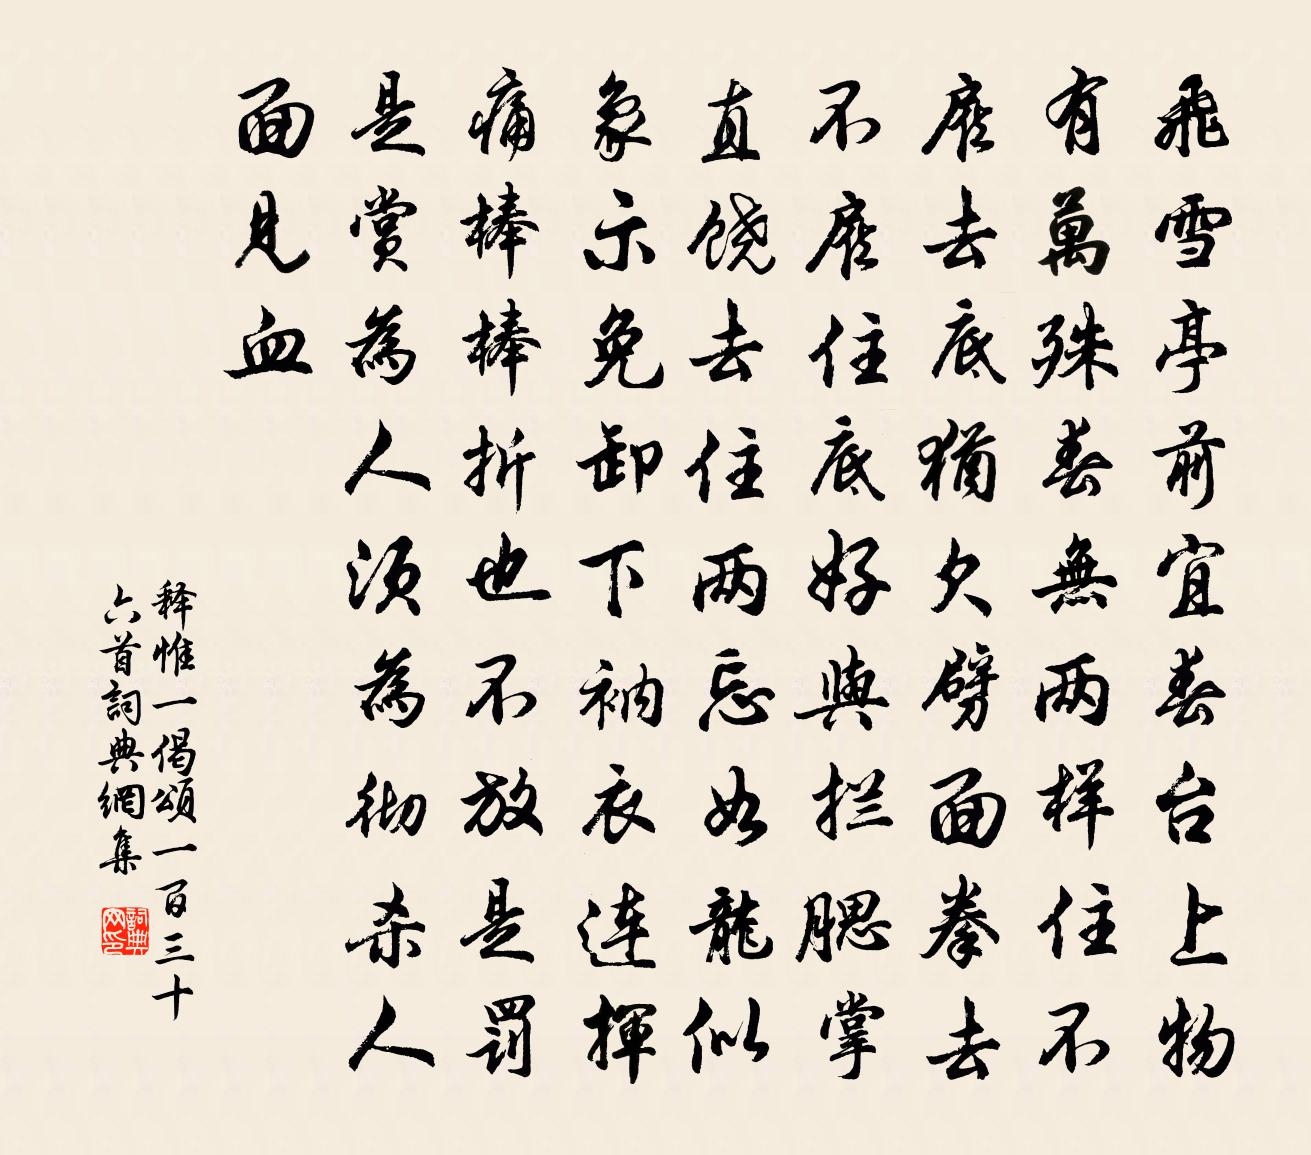 飛雪亭前宜春台上物
有萬殊春無两样住不
應去底猶欠劈面拳去
不應住底好與拦腮掌
直饶去住两忘如龍似
象示免卸下衲衣連揮
痛棒棒折也不放是罰
是赏為人须為彻杀人
面見血
释惟一偈頌一百三十
六首詞典網集
詞典网印